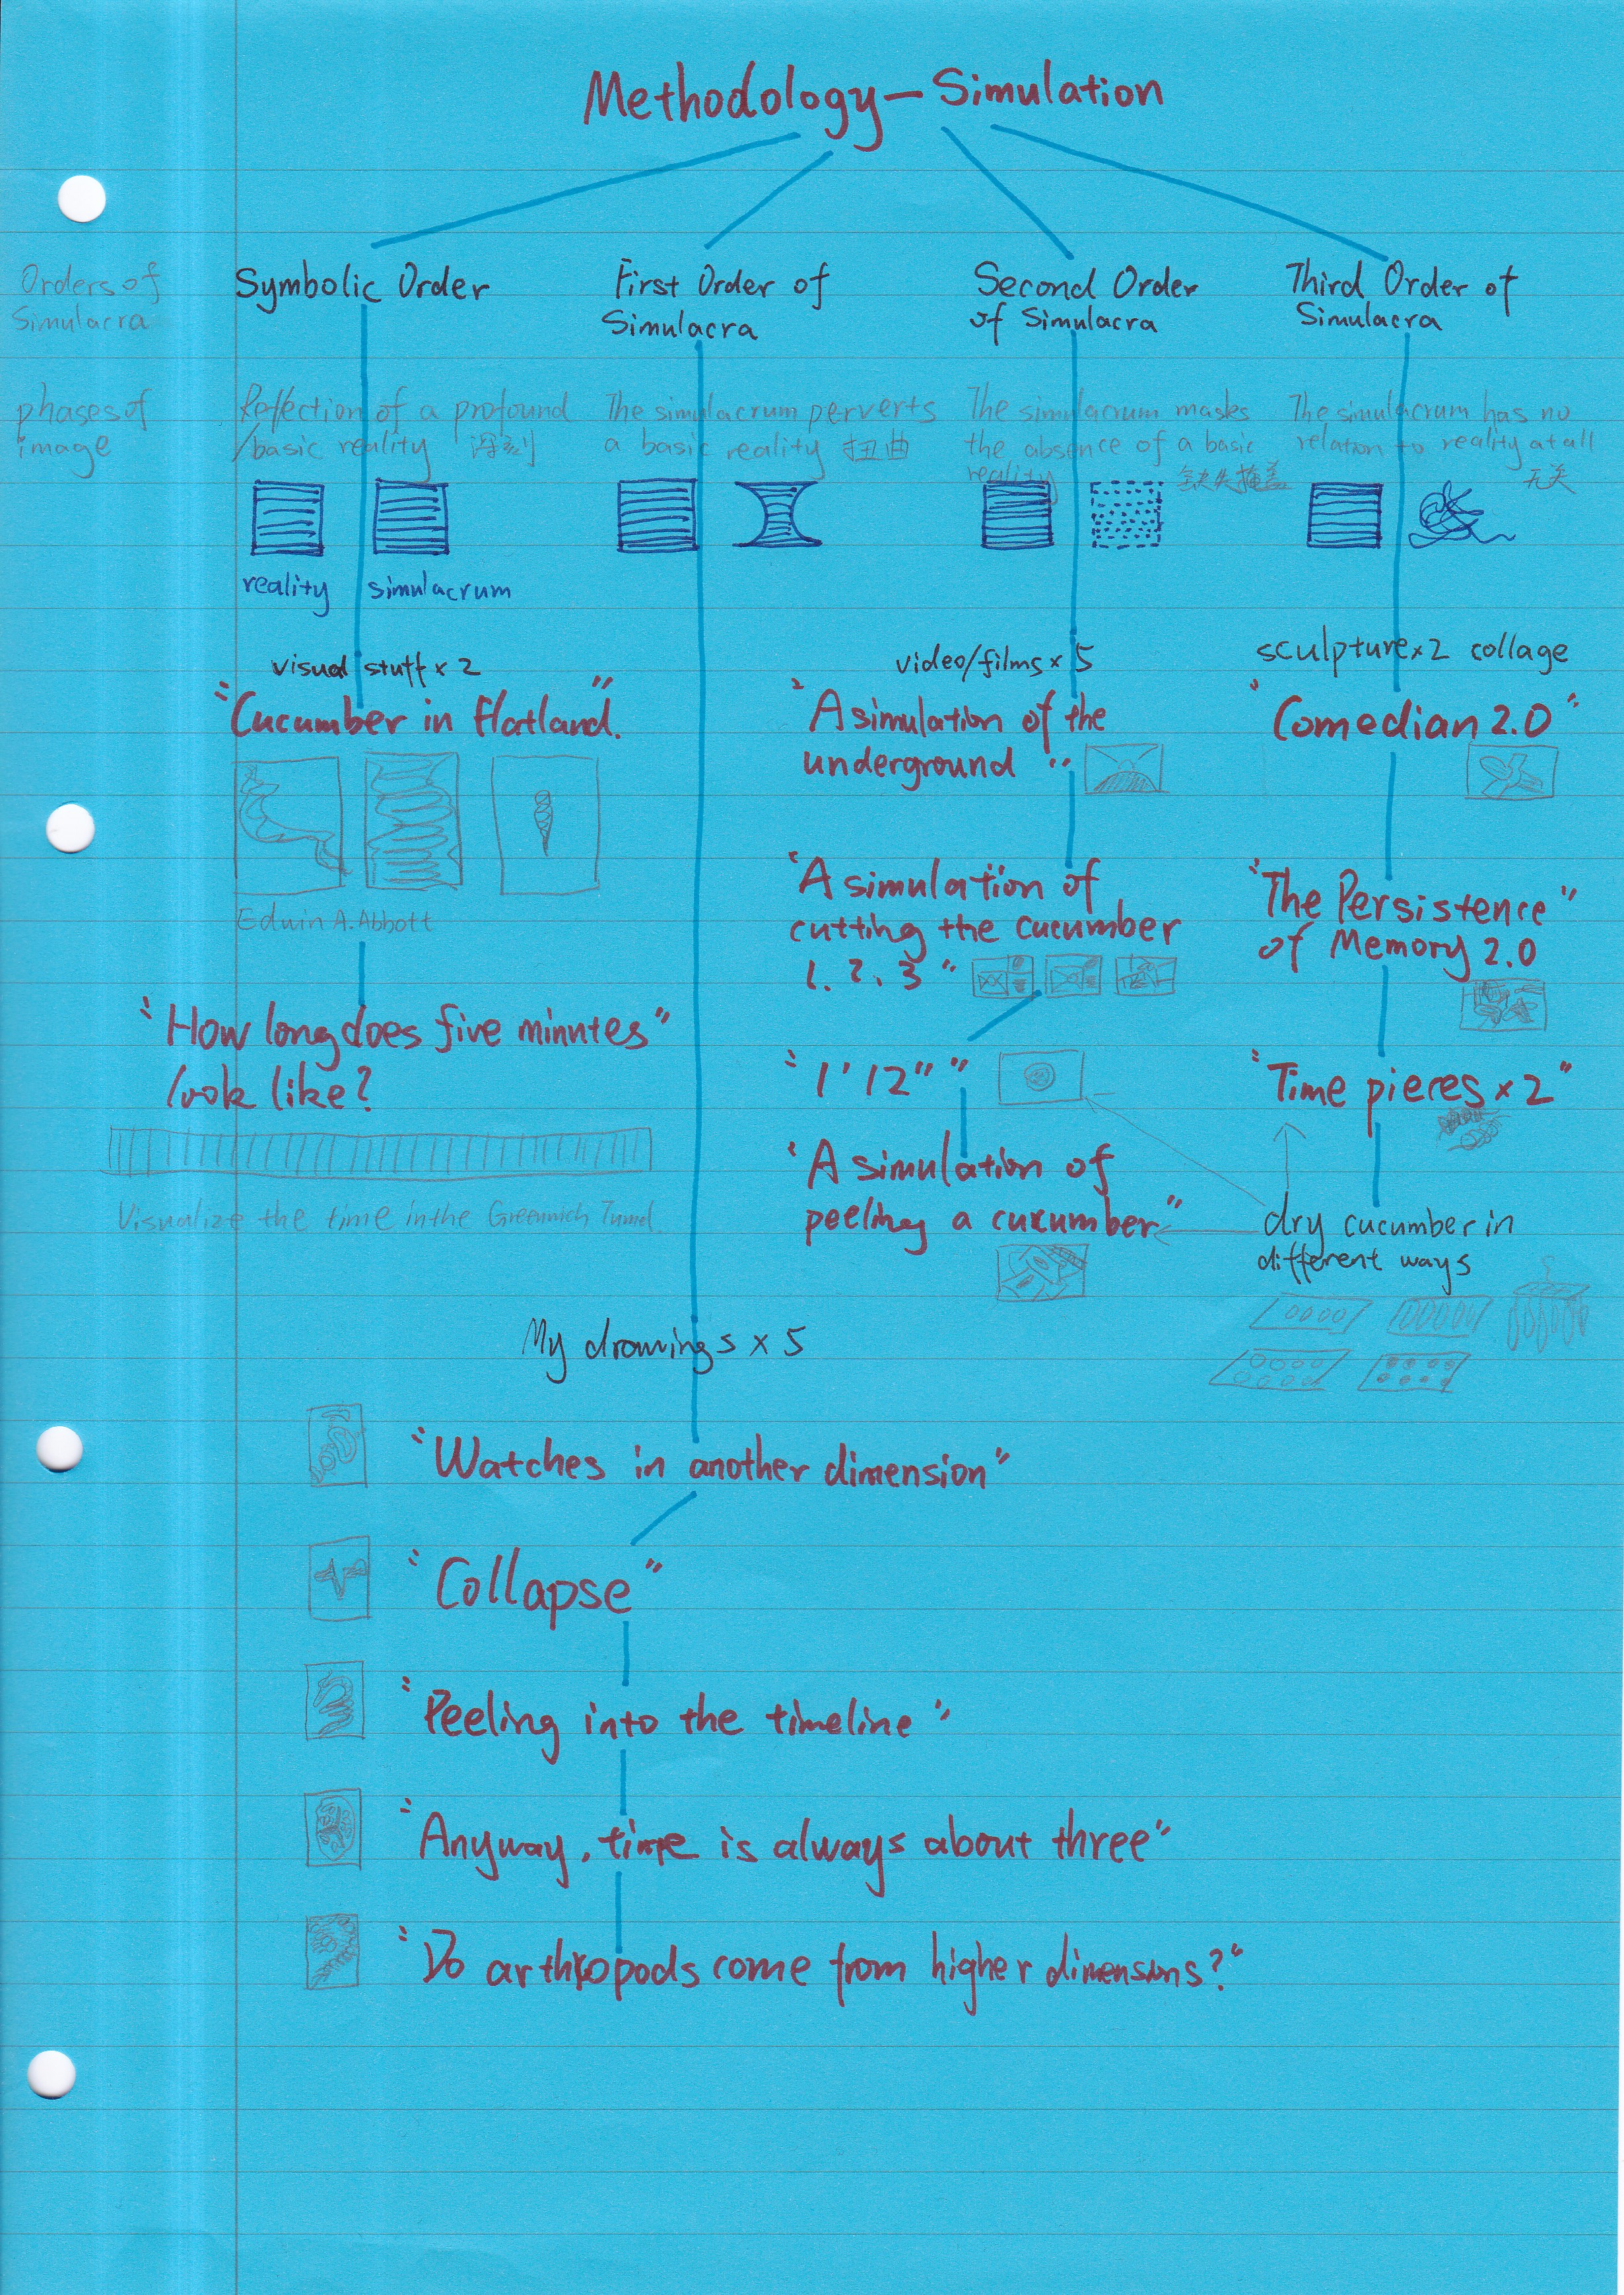 Methodology — Simulation
Orders of
Simulacra
Symbolic Order
First Order of
Simulacra
Second Order
of Simulacra
Third Order of
Simulacra
phases of
image
Reflection of a profound
/basic reality 深刻
The simulacrum perverts
a basic reality 扭曲
The simulacrum masks
the absence of a basic
reality 缺失掩盖
The simulacrum has no
relation to reality at all
无关
reality simulacrum
visual stuff x 2
"Cucumber in flatland."
Edwin A. Abbott
"How long does five minutes"
look like?
Visualize the time in the Greenwich Tunnel.
video/films x 5
"A simulation of the
underground"
"A simulation of
cutting the cucumber
1. 2. 3"
"1'12""
"A simulation of
peeling a cucumber"
sculpture x 2 collage
"Comedian 2.0"
"The Persistence"
of Memory 2.0
"Time pieces x 2"
dry cucumber in
different ways
My drawings x 5
"Watches in another dimension"
"Collapse"
"Peeling into the timeline"
"Anyway, time is always about three"
"Do arthropods come from higher dimensions?"